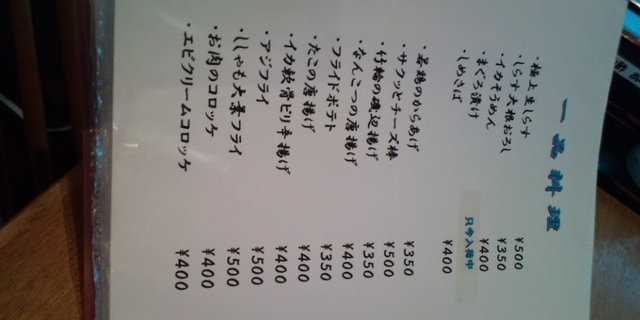 一品料理
・極上生しらす ¥500
・しらす大根おろし ¥350
・イカそうめん ¥400
・まぐろ漬け 只今入荷中
・しめさば ¥400
・若鶏のからあげ ¥350
・サクッとチーズ棒 ¥500
・竹輪の磯辺揚げ ¥350
・なんこつの唐揚げ ¥400
・フライドポテト ¥350
・たこの唐揚げ ¥400
・イカ軟骨ピリ辛揚げ ¥400
・アジフライ ¥500
・ししゃも大葉フライ ¥500
・お肉のコロッケ ¥400
・エビクリームコロッケ ¥400